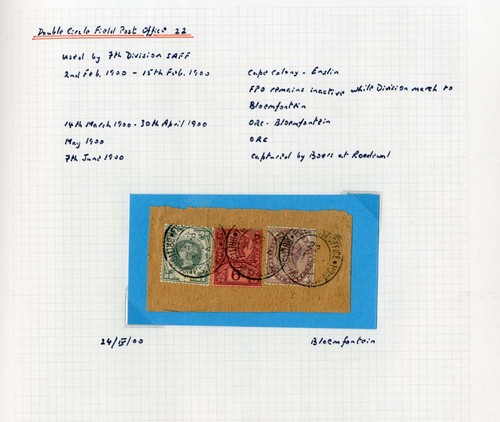 Double Circle Field Post Office 22
Used by 7th Division SAFF
2nd Feb. 1900 - 15th Feb. 1900 Cape Colony - Enslin
FPO remains inactive whilst Division march to
Bloemfontein
14th March 1900 - 30th April 1900 ORC - Bloemfontein
May 1900 ORC
7th June 1900 Captured by Boers at Roodewal
24/IV/00 Bloemfontein